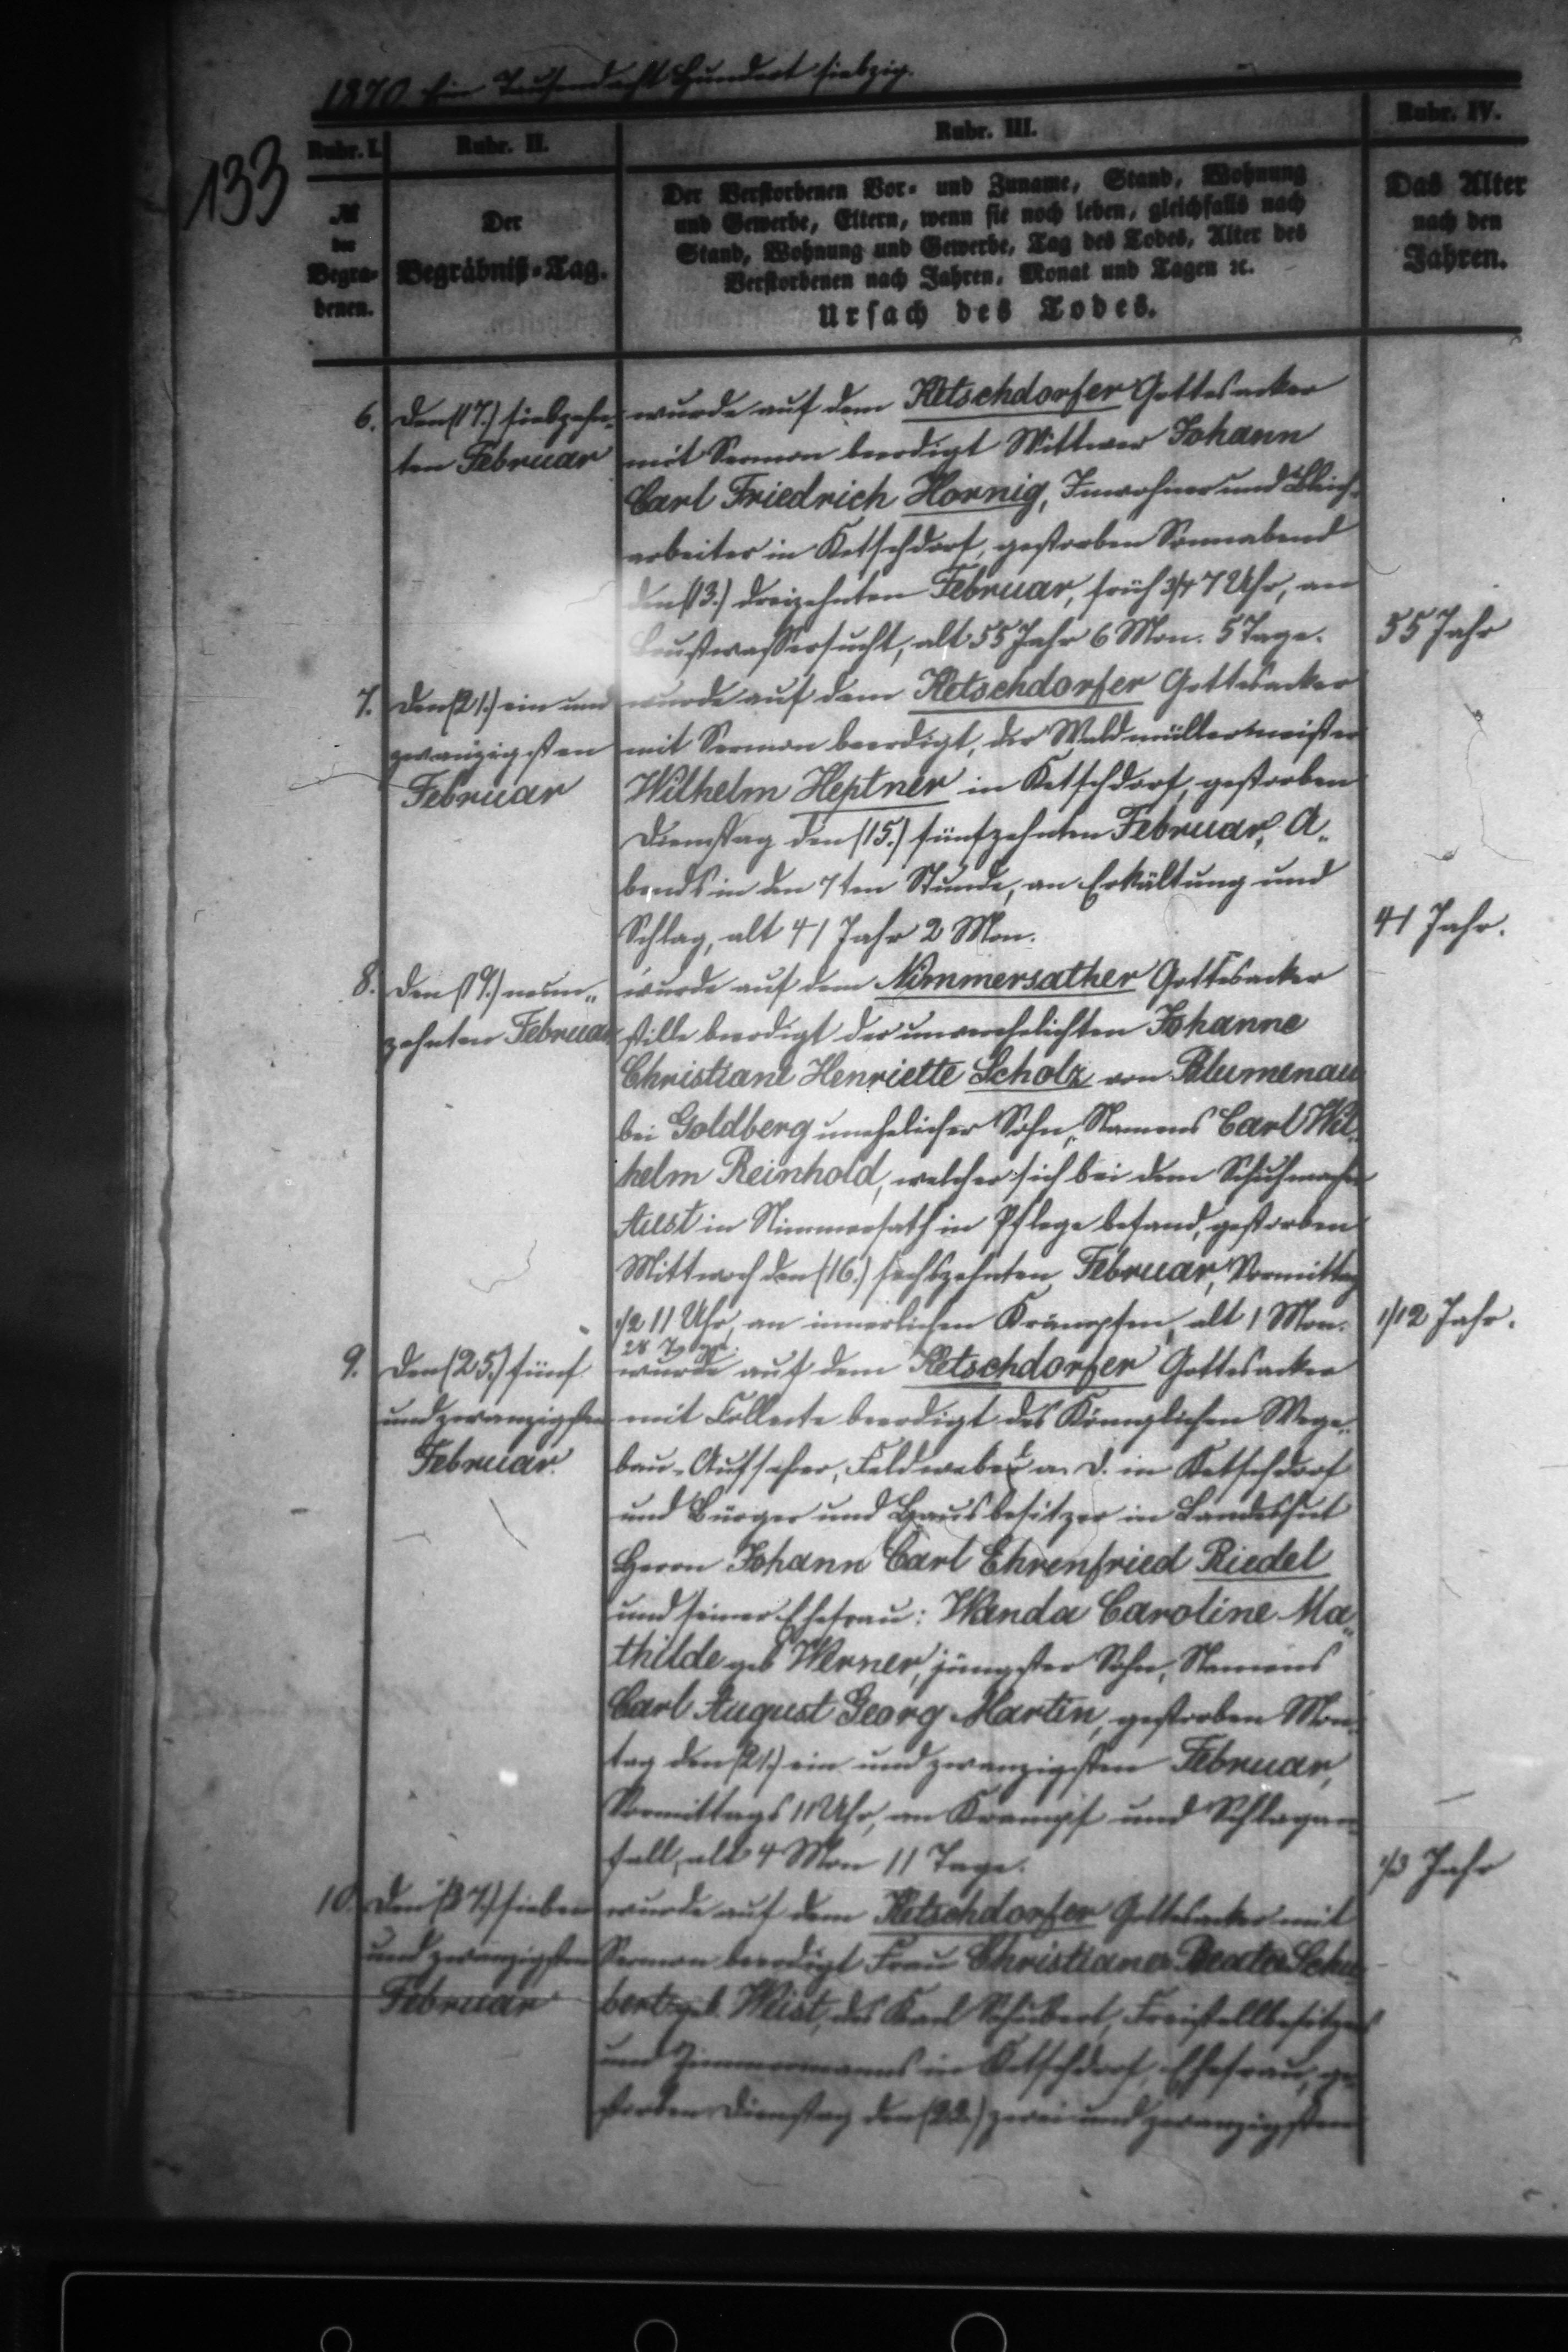 1870 Ein Tausend acht Hundert siebzig.
133
Rubr. I.
Rubr. II.
Rubr. III.
Rubr. IV.
№
der
Begra-
benen.
Der
Begräbniß-Tag.
Der Verstorbenen Vor- und Zuname, Stand, Wohnung
und Gewerbe, Eltern, wenn sie noch leben, gleichfalls nach
Stand, Wohnung und Gewerbe, Tag des Todes, Alter des
Verstorbenen nach Jahren, Monat und Tagen ꝛc.
Ursach des Todes.
Das Alter
nach den
Jahren.
6.
den (17.) siebzehn-
ten Februar
wurde auf dem Ketschdorfer Gottesacker
mit Sermon beerdigt Wittwer Johann
Carl Friedrich Hornig, Inwohner und Bleich-
arbeiter in Ketschdorf, gestorben Sonnabend
den (13.) dreizehnten Februar, früh 3/4 7 Uhr, an
Brustwassersucht, alt 55 Jahr 6 Mon. 5 Tage.
55 Jahr
7.
den (21.) ein und
zwanzigsten
Februar
wurde auf dem Ketschdorfer Gottesacker
mit Sermon beerdigt, der Waldmüllermeister
Wilhelm Heptner in Ketschdorf, gestorben
Dienstag den (15.) fünfzehnten Februar, A„
bends in den 7ten Stunde, an Erkältung und
Schlag, alt 41 Jahr 2 Mon.
41 Jahr.
8.
den (19.) neun„
zehnten Februar
wurde auf dem Nimmersather Gottesacker
stille beerdigt der unverehelichten Johanne
Christiane Henriette Scholz von Blumenau
bei Goldberg unehelicher Sohn, Namens Carl Wil„
helm Reinhold, welcher sich bei dem Schuhmacher
Aust in Nimmersath in Pflege befand, gestorben
Mittwoch den (16.) sechszehnten Februar, Vormittag
1/2 11 Uhr, an innerlichen Krämpfen, alt 1 Mon.
28 Tage.
1/12 Jahr.
9.
den (25.) fünf
und zwanzigsten
Februar.
wurde auf dem Ketschdorfer Gottesacker
mit Collecte beerdigt des Königlichen Wege„
bau-Aufseher, Feldwebel a. D. in Ketschdorf
und Bürger und Hausbesitzer in Landeshut
Herrn Johann Carl Ehrenfried Riedel
und seiner Ehefrau: Wanda Caroline Ma„
thilde geb Werner, jüngster Sohn, Namens
Carl August Georg Martin, gestorben Mon„
tag den (21.) ein und zwanzigsten Februar,
Vormittags 11 Uhr, an Krampf und Schlagan„
fall, alt 4 Mon 11 Tage.
1/3 Jahr
10.
den (27.) sieben
und zwanzigsten
Februar
wurde auf dem Ketschdorfer Gottesacker mit
Sermon beerdigt Frau Christiane Beate Schu
bert geb. Weist, des Karl Schubert, Freistellbesitzers
und Zimmermanns in Ketschdorf, Ehefrau, ge„
storben Dienstag den (22.) zwei und zwanzigsten